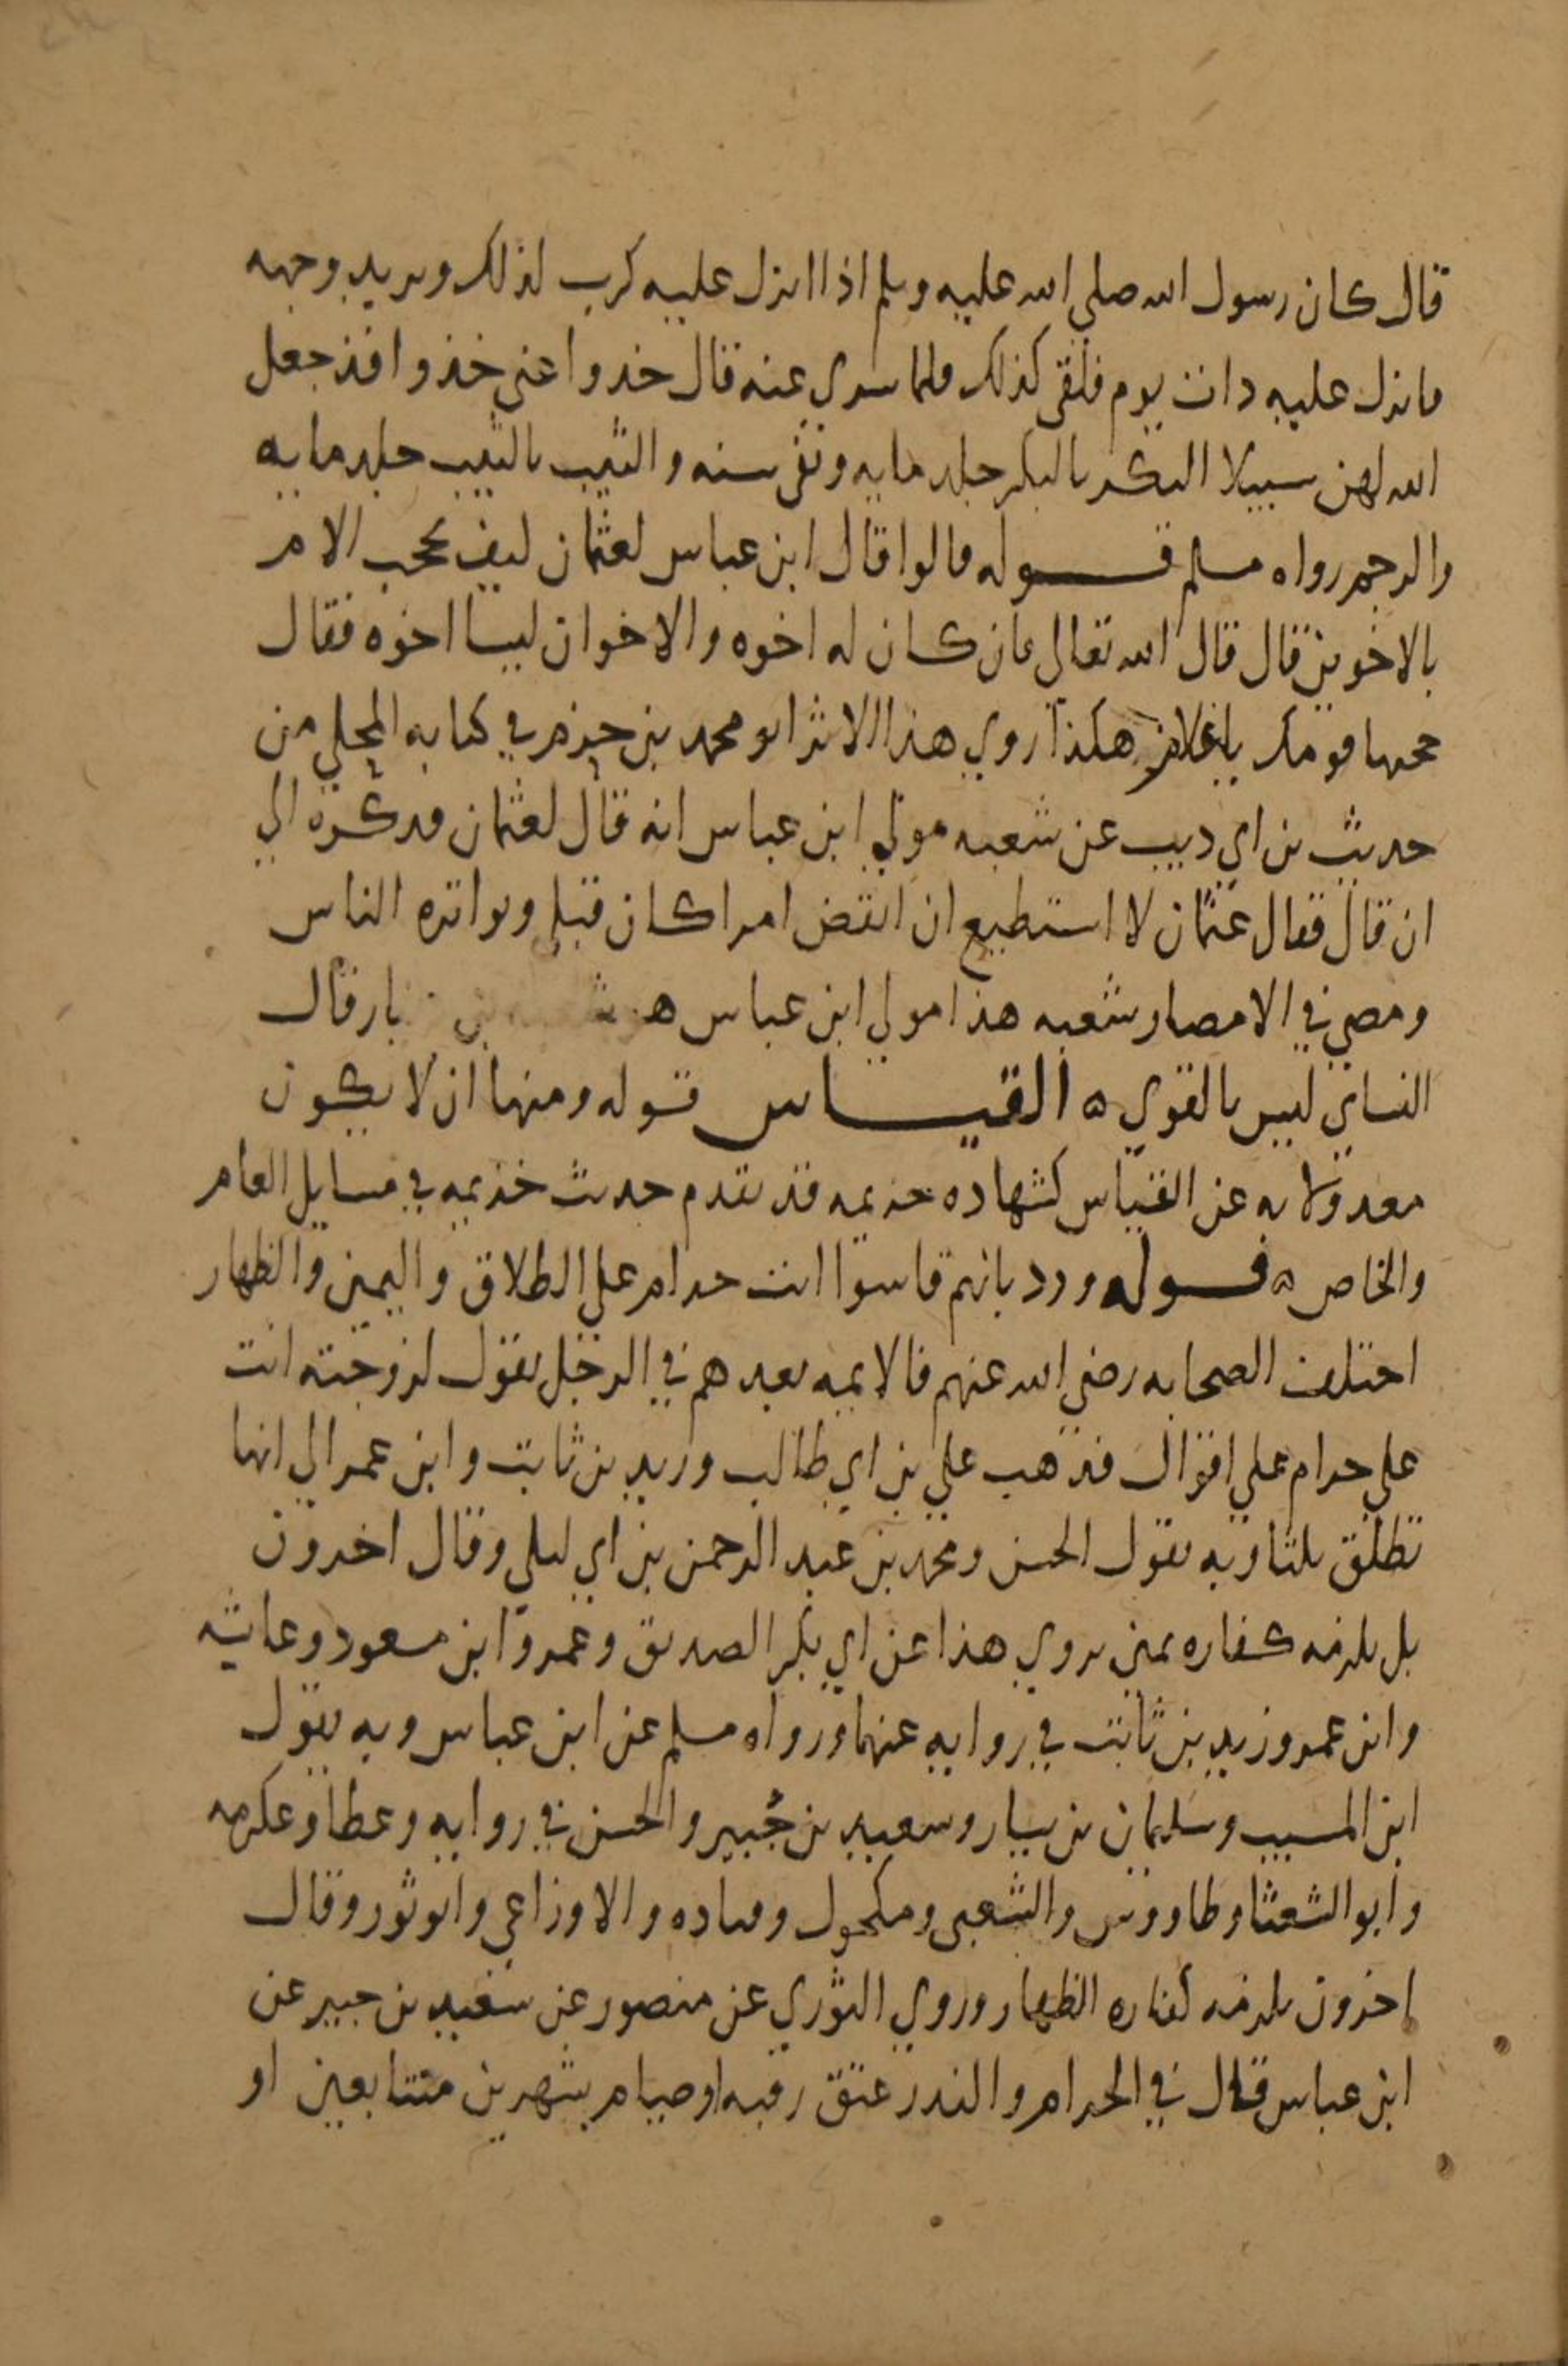 قال كان رسول الله صلي الله عليه وسلم اذا انزل عليه كرب لذلك وتربد وجهه
فانزل عليه ذات يوم فلقي كذلك فلما سري عنه قال خذوا عني خذوا فقد جعل
الله لهن سبيلا البكر بالبكر جلد مايه ونفي سنه والثيب بالثيب جلد مايه
والرجم رواه مسلم قوله قالوا قال ابن عباس لعثمان كيف تحجب الام
بالاخوين قال قال الله تعالي فان كان له اخوه والاخوان ليسا اخوه فقال
حجبها قومك ياغلام هكذا روي هذا الاثر ابو محمد بن حزم في كتابه المحلي من
حديث بن ابي ديب عن شعبه مولي ابن عباس انه قال لعثمان فذكره الي
ان قال فقال عثمان لا استطيع ان انقض امرا كان قبلي وتواتره الناس
ومضي في الامصار شعبه هذا مولي ابن عباس قال
النساي ليس بالقوي ه القياس قوله ومنها ان لا يكون
معدولا به عن القياس كشهاده خزيمه قد تقدم حديث خزيمه في مسايل العام
والخاص ه قوله ورد بانهم قاسوا انت حرام علي الطلاق واليمين والظهار
اختلف الصحابه رضي الله عنهم فالايمه بعدهم في الرجل يقول لزوجته انت
علي حرام علي اقوال فذهب علي بن ابي طالب وزيد بن ثابت وابن عمر الي انها
تطلق ثلثا وبه يقول الحسن ومحمد بن عبد الرحمن بن ابي ليلي وقال اخرون
بل يلزمه كفاره يمين يروي هذا عن ابي بكر الصديق وعمر وابن مسعود وعايشه
وابن عمر وزيد بن ثابت في روايه عنهما ورواه مسلم عن ابن عباس وبه يقول
ابن المسيب وسليمان بن يسار وسعيد بن جُبير والحسن في روايه وعطا وعكرمه
وابو الشعثا وطاووس والشعبي ومكحول وقتاده والاوزاعي وابو ثور وقال
اخرون يلزمه كفاره الظهار وروي الثوري عن منصور عن سعيد بن جبير عن
ابن عباس قال في الحرام والنذر عتق رقبه او صيام شهرين متتابعين او